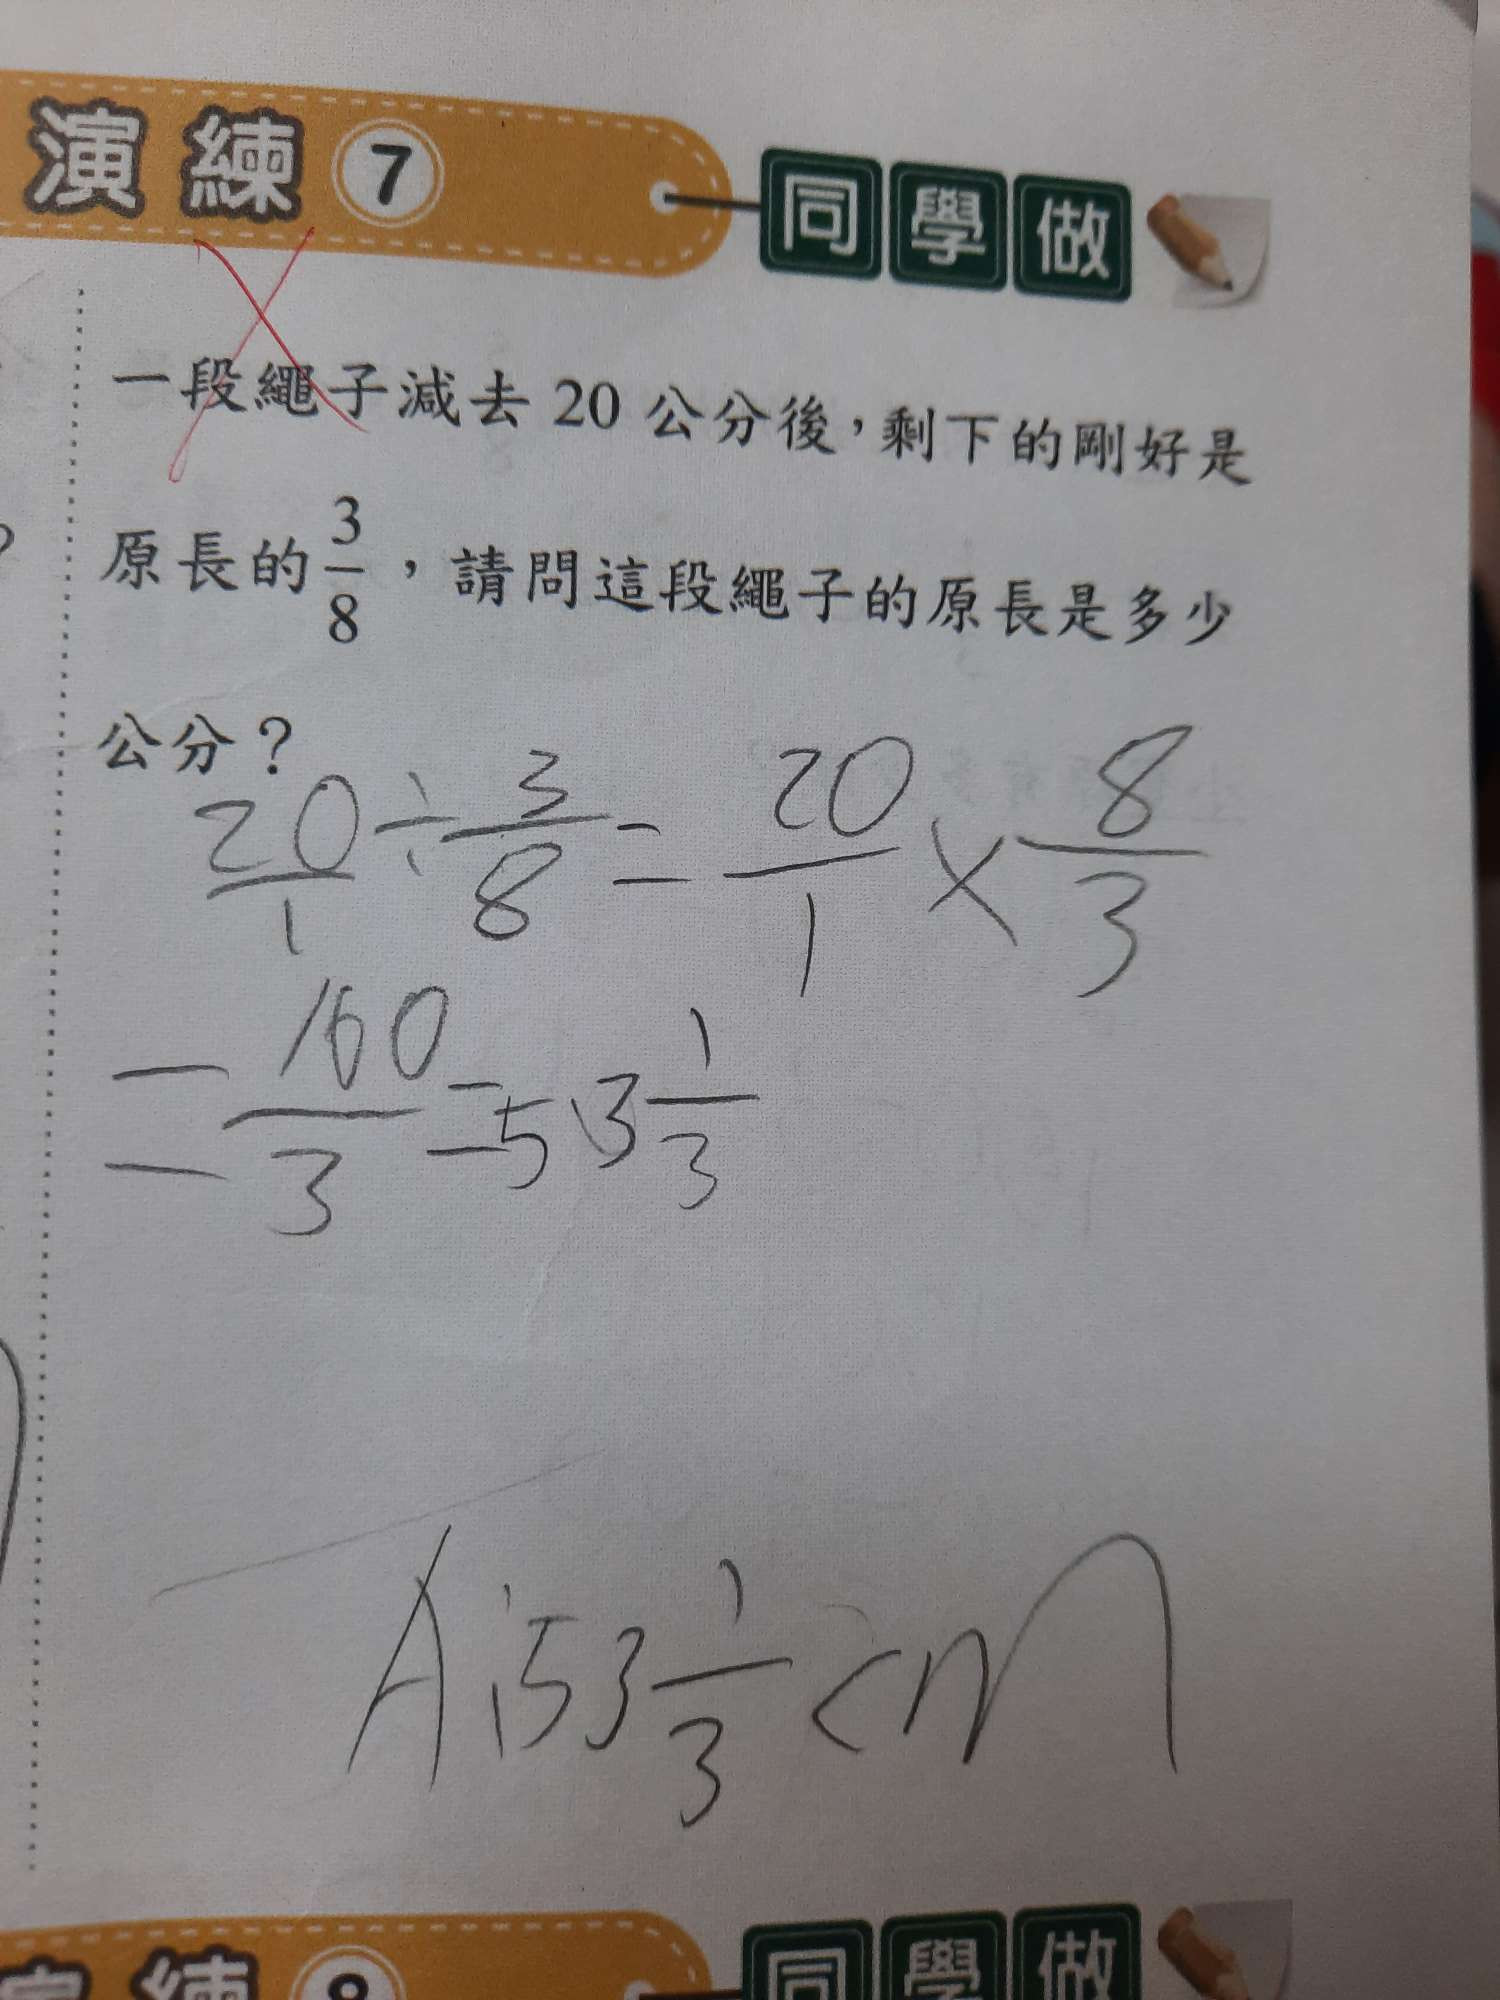 演練 7 同學做
一段繩子減去 20 公分後，剩下的剛好是
原長的 3/8，請問這段繩子的原長是多少
公分？
20/1 ÷ 3/8 = 20/1 × 8/3
= 160/3 = 53 1/3
A:53 1/3 cm
演練 8 同學做